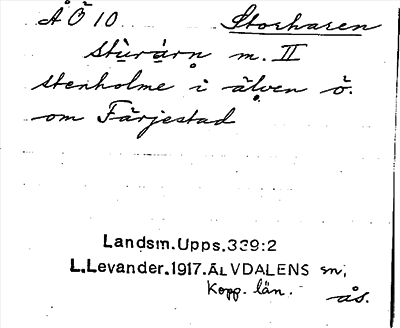 ÅÖ 10 Storharen
stùràrn m. II
stenholme i älven ö.
om Färjestad
Landsm.Upps.339:2
L.Levander.1917.ÄLVDALENS sn,
Kopp. län.
ås.